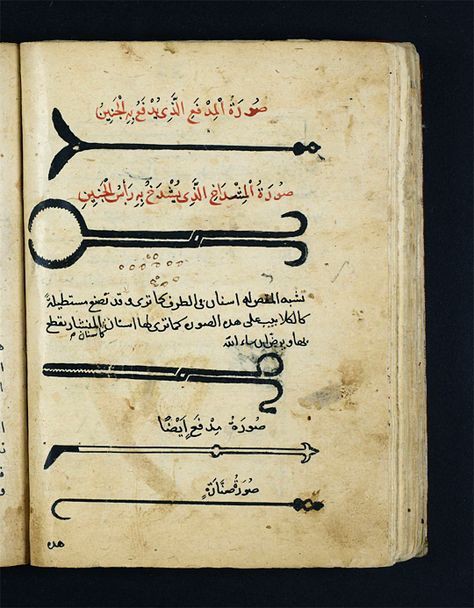 صورة المدفع الذي يدفع به الجنين
صورة المشداخ الذي يشدخ به رأس الجنين
تشبه المقص له اسنان في الطرف كما ترى وقد تصنع مستطيلة
كالكلاليب على هذه الصورة كما ترى لها اسنان كاسنان المنشار يقطع
بها ويرض ان شاء الله
صورة مدفع ايضا
صورة صنارة
هذه